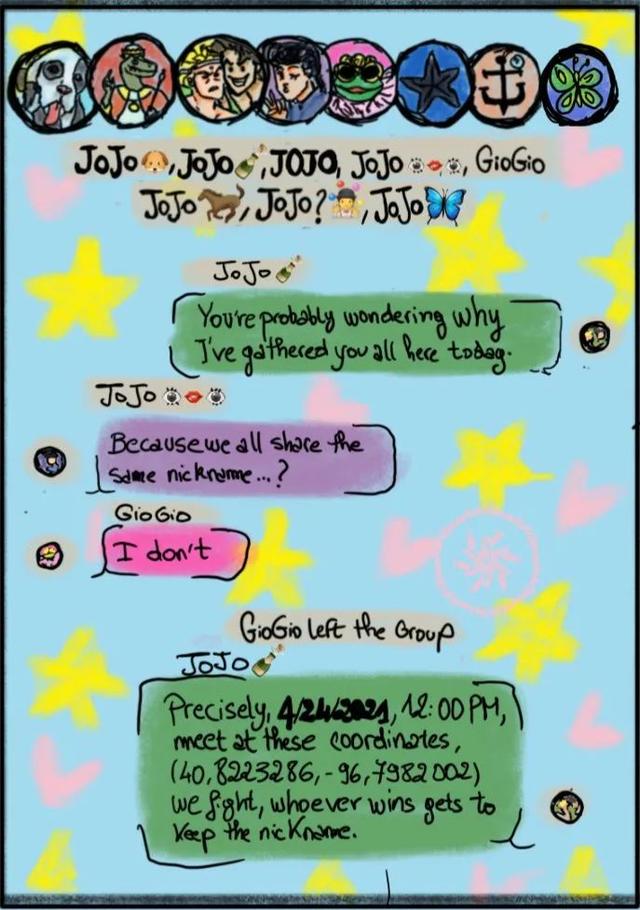 JoJo🐶, JoJo🍾, JOJO, JoJo👁💋👁, GioGio
JoJo🐎, JoJo?🤹, JoJo🦋
JoJo🍾
You're probably wondering why
I've gathered you all here today.
JoJo👁💋👁
Because we all share the
same nickname...?
GioGio
I don't
GioGio left the Group
JoJo🍾
Precisely, 4/24/2021, 12:00 PM,
meet at these coordinates,
(40,8223286,-96,7982002)
we fight, whoever wins gets to
keep the nickname.